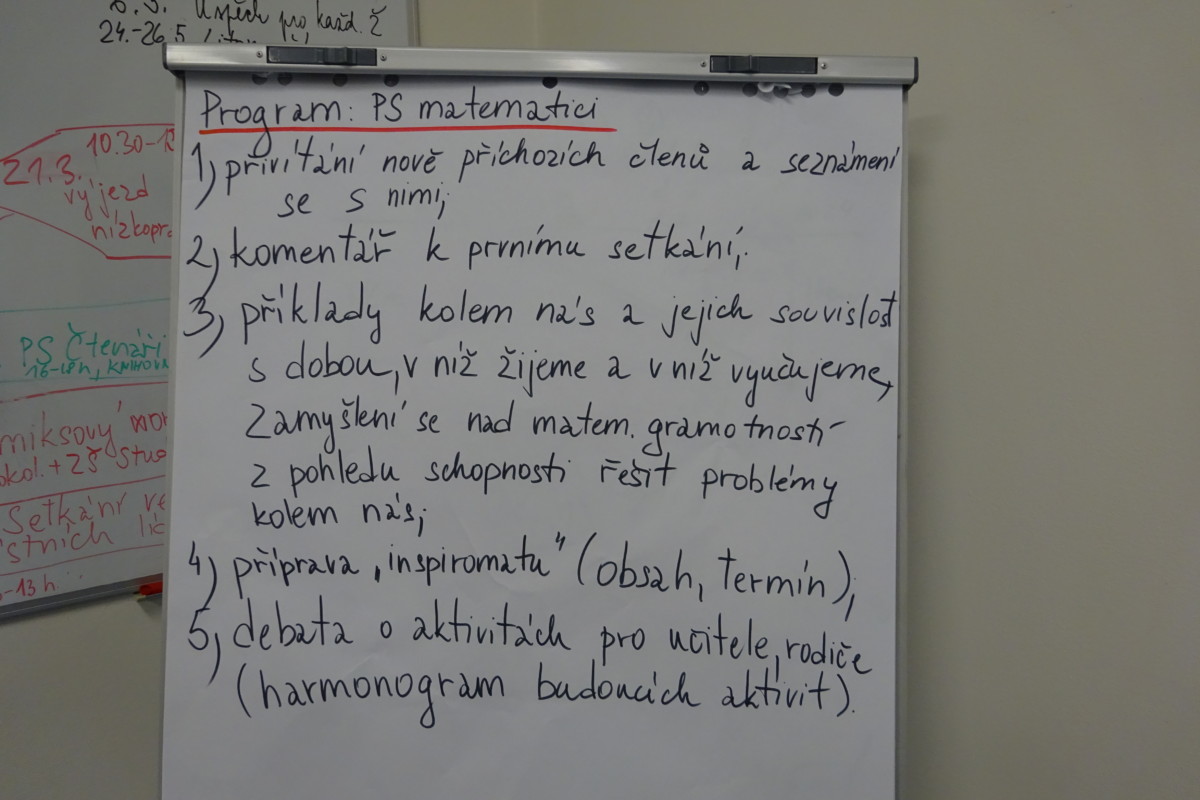 Úspěch pro každ. ž
24.-26.5
10.30-1
21.3.
výjezd
nízkopra
PS Čtenáři
16-18h, KNIHOVN
Setkání ve
-13 h
Program: PS matematici
1) přivítání nově příchozích členů a seznámení
se s nimi;
2) komentář k prvnímu setkání;
3) příklady kolem nás a jejich souvislost
s dobou, v níž žijeme a v níž vyučujeme,
Zamyšlení se nad matem. gramotností
z pohledu schopnosti řešit problémy
kolem nás;
4) příprava „inspiromatu“ (obsah, termín);
5) debata o aktivitách pro učitele, rodiče
(harmonogram budoucích aktivit).